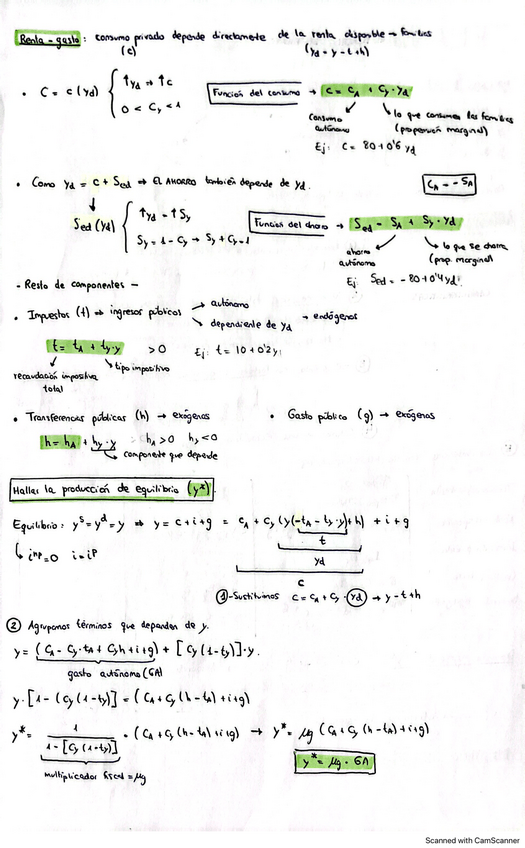 Renta-gasto: consumo privado depende directamente de la renta disponible → familias
(c) (yd = y - t + h)
• C = c (yd) { ↑yd → ↑c Función del consumo → c = cA + cy · yd
0 < Cy < 1 consumo autónomo lo que consumen las familias (proporción marginal)
Ej: C = 80 + 0'6 yd
• Como yd = c + Sed ⇒ EL AHORRO también depende de yd. CA = - SA
Sed (yd) { ↑yd → ↑Sy Función del ahorro → Sed = SA + Sy · yd
Sy = 1 - Cy → Sy + Cy = 1 ahorro autónomo lo que se ahorra (prop. marginal)
Ej: Sed = - 80 + 0'4 yd
- Resto de componentes -
• Impuestos (t) ⇒ ingresos públicos → autónomo
→ dependiente de yd → endógenos
t = tA + ty · y > 0 Ej: t = 10 + 0'2 y
recaudación impositiva total tipo impositivo
• Transferencias públicas (h) → exógenas • Gasto público (g) → exógenas
h = hA + hy · y hA > 0 hy < 0
componente que depende
Hallar la producción de equilibrio (y*).
Equilibrio: yˢ = yᵈ = y ⇒ y = c + i + g = cA + cy (y (-tA - ty · y) + h) + i + g
iⁿᵖ = 0 i = iᵖ t
yd
c
①-Sustituimos c = cA + cy · (yd) → y - t + h
② Agrupamos términos que dependen de y.
y = (CA - Cy · tA + Cy h + i + g) + [Cy (1 - ty)] · y.
gasto autónomo (GA)
y · [1 - (Cy (1 - ty)] = (CA + Cy (h - tA) + i + g)
y* = 1 / 1 - [Cy (1 - ty)] · (CA + Cy (h - tA) + i + g) → y* = μg (CA + Cy (h - tA) + i + g)
multiplicador fiscal = μg y* = μg · GA
Scanned with CamScanner